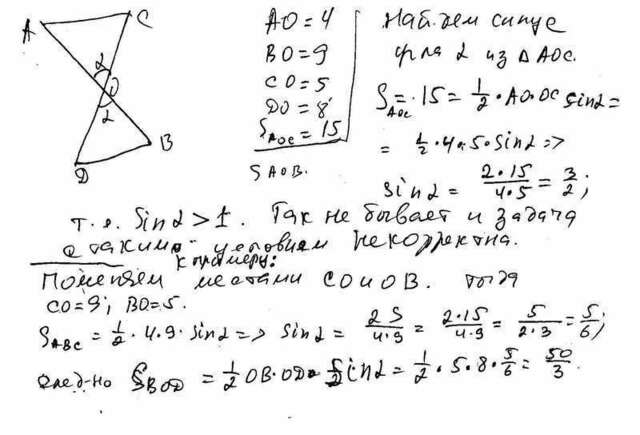 A C
α
O
α
B
D
AO = 4
BO = 9
CO = 5
DO = 8
S_AOC = 15
S AOB.
Найдем синус
угла α из △ AOC.
S_AOC = 15 = 1/2 · AO · OC sin α =
= 1/2 · 4 · 5 · sin α =>
sin α = 2·15/4·5 = 3/2;
т.е. sin α > 1. Так не бывает и задача
с таким условием некорректна.
К примеру:
Поменяем местами CO и OB. тогда
CO = 9; BO = 5.
S_ABC = 1/2 · 4·9 · sin α => sin α = 2S/4·9 = 2·15/4·9 = 5/2·3 = 5/6;
след-но S_BOD = 1/2 OB·OD· sin α = 1/2 · 5 · 8 · 5/6 = 50/3.